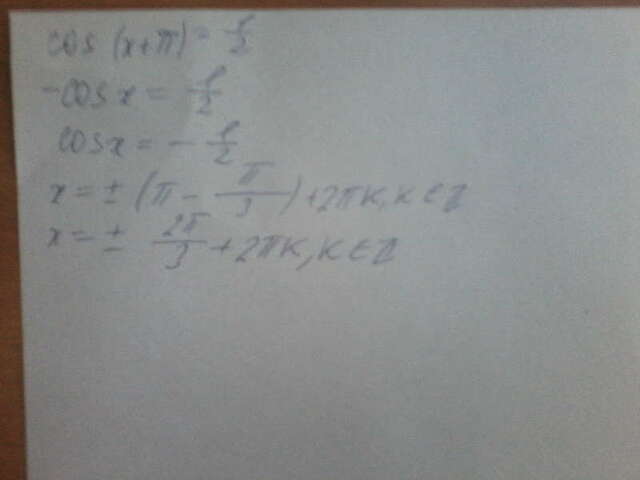 cos (x+π) = 1/2
-cos x = 1/2
cos x = - 1/2
x = ± (π - π/3) + 2πк, к ∈ Z
x = ± 2π/3 + 2πк, к ∈ Z